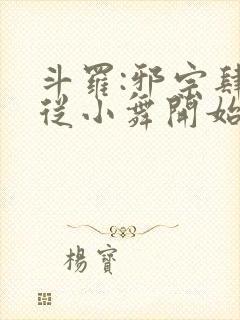 斗羅:邪宗肆
從小舞開始
楊寶